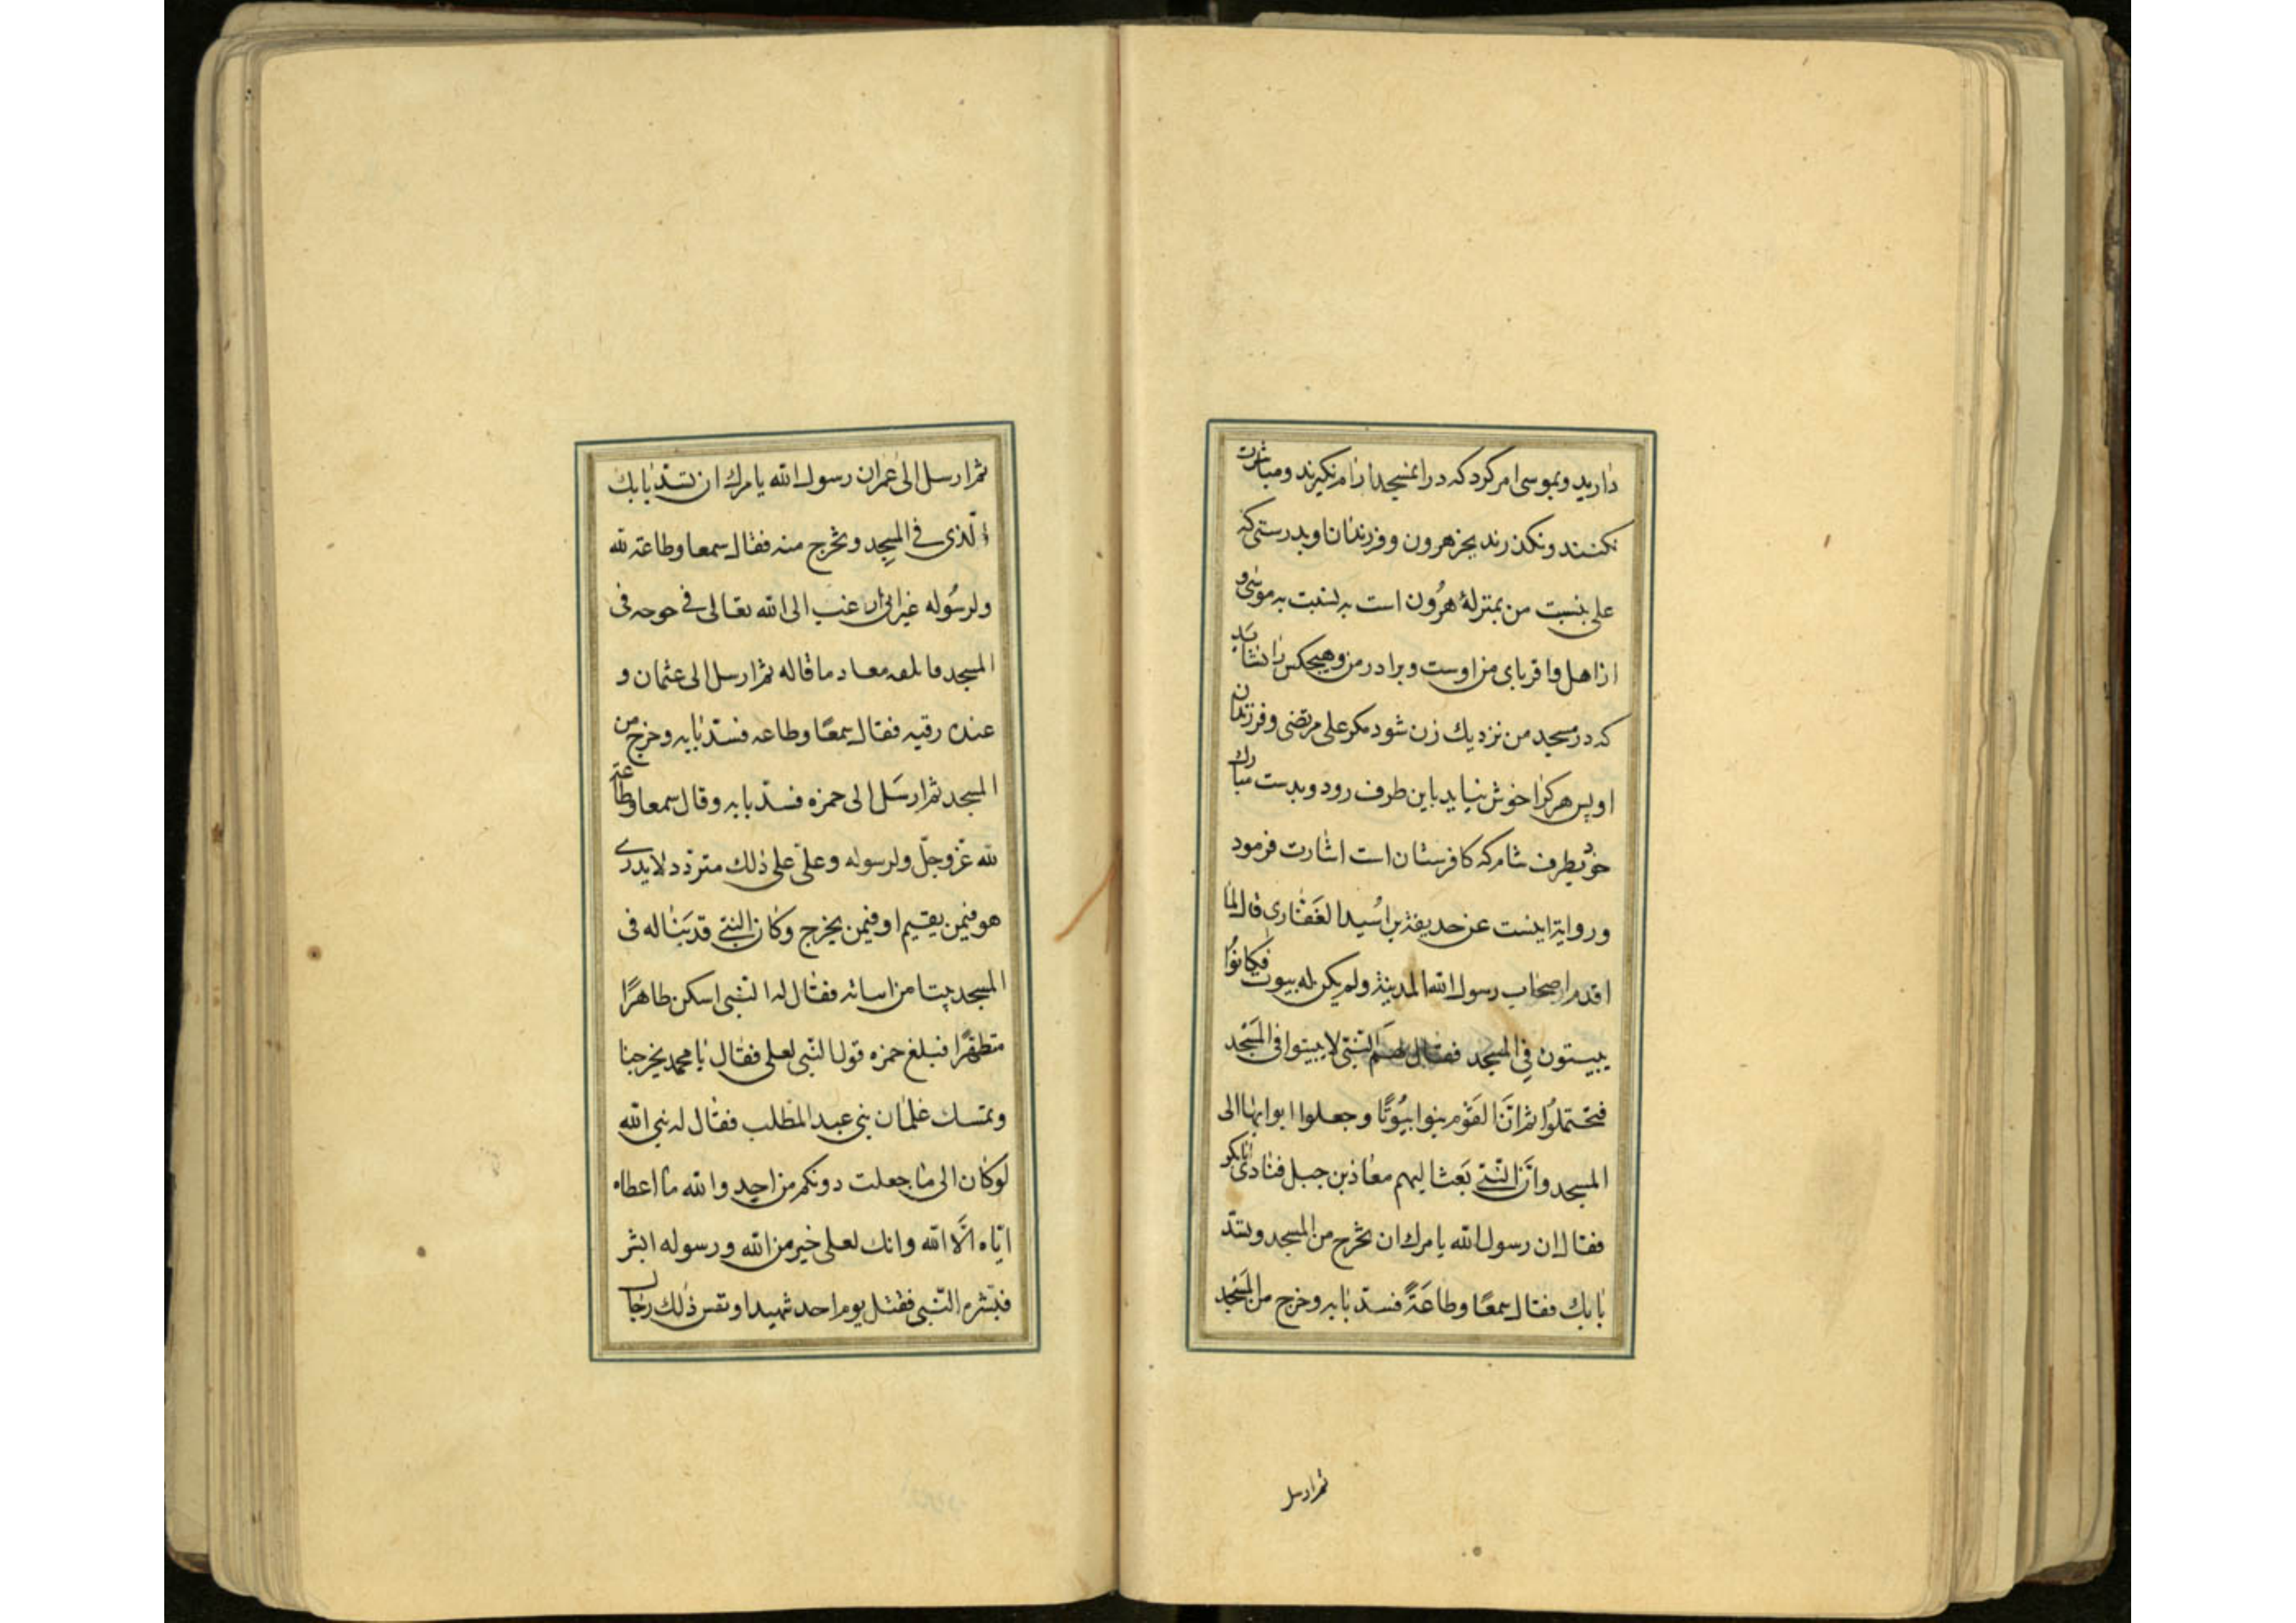 دارید و بموسی امر کرد که در ان مسجد ارام نکیرند و مباشرت
نکنند و نکذرند بجز هرون و فرزندان او بدرستی که
علی بنسبت من بمنزلهٔ هرُون است به نسبت به موسی و
از اهل و اقربای من اوست و برادر من و هیچکس را نشاید
که در مسجد من نزدیك زن شود مکر علی مرتضی و فرزندان
او پس هر کرا خوش نیاید باین طرف رود و بدست مبارك
خود بطرف شام که کافرستان است اشارت فرمود
و روایة اینست عن حدیفة بن اسُید الغَفٰاری قال لما
اقدم اصحاب رسول الله المدینة ولم یکن له بیوت فکانوُا
یبیستون فِی المسجد فقال لهم النبی لا یبیتوا فی المَسْجد
فتحتملُوا ثم انَّ القَوْم بنوا بیُوتًا و جعلوا ابوابها الی
المسجد وانَّ النبّی بَعث الیهم معاذ بن جبل فنادی ابابکر
فقال ان رسول الله یامرك ان تخرج من المسجد و تسدّ
بابك فقال سمعًا وطاعَةً فسدّ بابه وخرج من المَسْجد
ثم ارسل
ثم ارسل الی عمران رسول الله یامرك ان تسدّ بابك
الّذی فی المسجِد و تخرج منه فقال سمعا وطاعة لله
ولرسُوله غیر انی ار عنب الی الله تعالی فی حوحه فی
المسجد فابلغه معاد ما قاله ثم ارسل الی عثمان و
عنده رقیه فقال سمعًا وطاعه فسدّ بابه وخرج من
المسجد ثم ارسَل الی حمزه فسدّ بابه وقال سمعا وطاعة
لله عَزّ وجلّ ولرسوله وعلّی علی ذلك متردّد لا یدری
هو فیمن یقیم او فیمن یخرج وکان النبّی قد بَنٰا له فی
المسجد بیتا من اساته فقال له النبّی اسکن طاهرًا
متطهّرًا فبلغ حمزه قول النبّی لعلی فقال یا محمد یخرجنا
وتمسك غلمان بنی عبد المطلب فقال له نبی الله
لو کان الی ما جعلت دونکم من احدٍ والله ما اعطاه
ایّاه الّا الله وانك لعلی خیر من الله ورسوله ابشر
فبشّره النبّی فقتل یوم احد شهیدا و نفس ذلك رجال